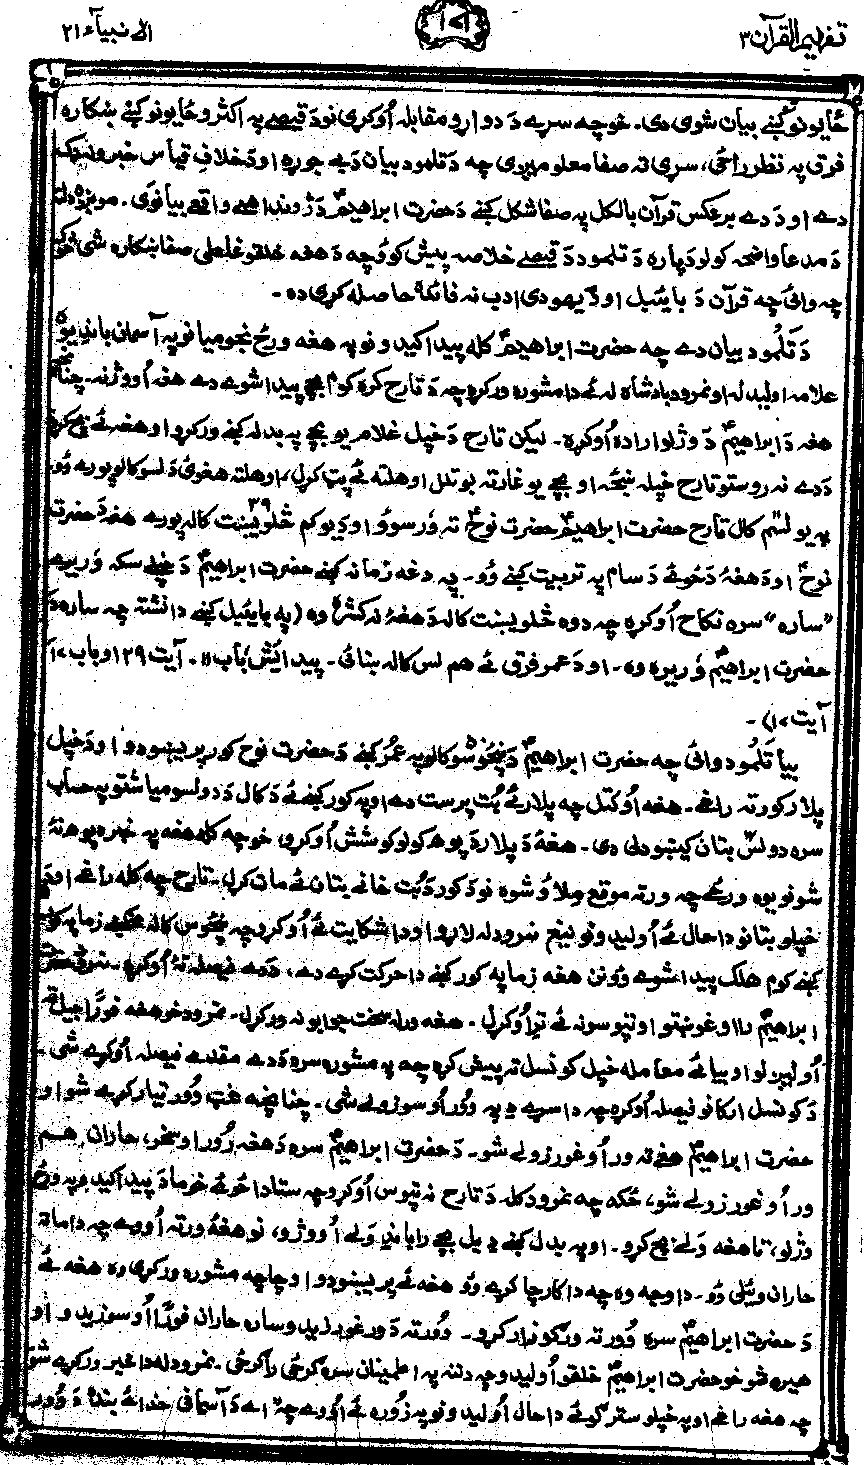 تفهیم القرآن ۳
۱۷۱
الانبیآء ۲۱
ځایونو کښے بیان شوی دی. خوچه سړے د دواړو مقابله اُوکړی نو د قیصے په اکثرو ځایونو کښے ښکاره
فرق په نظر راځی، سړی ته صفا معلومیږی چه د تلمود بیان دیے جوړه او د خلاف قیاس خبرو نه ډک
دے او د دے برعکس قرآن بالکل په صفا شکل کښے د حضرت ابراهیمؑ د ژوند اهم واقعے بیانوی. مونږه دلته
د مدعا واضحه کولو دپاره د تلمود د قیصے خلاصه پیش کوُو چه د هغه خلقو غلطی صفا ښکاره شی څوک
چه وائی چه قرآن د بائیبل او د یهودی ادب نه فائده حاصله کړی ده -
د تلمود بیان دے چه حضرت ابراهیمؑ کله پیدا کیدو نو په هغه ورځ نجومیانو په آسمان باندے یوه
علامه اولیدله او نمرود بادشاه له ئے دا مشوره ورکړه چه د تارح کره کوم بچے پیدا شوے دے هغه اُووژنه. چنانچه
هغه د ابراهیمؑ د وژلو اراده اُوکړه. لیکن تارح د خپل غلام یو بچے په بدله کښے ورکړو او هغه ئے بچ کړو
ددے نه روستو تارح خپله ښځه او بچے یو غار ته بوتلل او هلته ئے پټ کړل، او هلته هغوی د لسو کالو پورے وُو.
په یولسم کال تارح حضرت ابراهیمؑ حضرت نوحؑ ته ورسوو او دیو کم څلویښت ۳۹ کاله پورے هغه د حضرت
نوحؑ او د هغهٔ د ځوئے د سام په تربیت کښے وُو. په دغه زمانه کښے حضرت ابراهیمؑ د خپلے سکه وریرے
"ساره" سره نکاح اُوکړه چه دوه څلویښت کاله د هغهٔ نه کشره وه (په بائیبل کښے دا نشته چه ساره د
حضرت ابراهیمؑ وریره وه. او د عمر فرق ئے هم لس کاله بنائی. پیدائش باب ۱۱. آیت ۲۹ او باب ۱۷
آیت ۱۷) -
بیا تلمود وائی چه حضرت ابراهیمؑ د پنځوسو کالو په عمر کښے د حضرت نوح کور پریښودو او د خپل
پلار کور ته راغے. هغه اُوکتل چه پلار ئے بُت پرست دے او په کور کښے ئے د کال د دولسو میاشتو په حساب
سره دولس بتان کیښودلی دی. هغهٔ د پلار د پوهه کولو کوشش اُوکړو، خو چه کله هغه په خبره پوهه نهٔ
شو نو یوه ورځے چه ورته موقع ملاؤ شوه نو د کور د بُت خانے بتان ئے مات کړل. تارح چه کله راغے او د
خپلو بتانو دا حال ئے اُولیدو نو نیغ نمرود له لاړو او دا شکایت ئے اُوکړو چه پنځوس کاله مخکښے زما په کور
کښے کوم هلک پیدا شوے وُو نن هغه زما په کور کښے دا حرکت کړے دے، ددے فیصله تهٔ اُوکړه. نمرود حضرت
ابراهیمؑ را اوغوښتو او تپوسونه ئے ترے اُوکړل. هغه ورله سخت جوابونه ورکړل. نمرود خو هغه فوراً جیل ته
اُولیږلو او بیا ئے معامله خپل کونسل ته پیش کړه چه په مشوره سره ددے مقدمے فیصله اُوکړے شی.
د کونسل ارکانو فیصله اُوکړه چه دا سړے دِ په وُور اُوسوزولے شی. چنانچه غټ وُور تیار کړے شو او
حضرت ابراهیمؑ هغے ته ور اُوغورزولے شو. د حضرت ابراهیمؑ سره د هغه رور او سخر، حاران هم
ور اُوغورزولے شو، ځکه چه نمرود کله د تارح نه تپوس اُوکړو چه ستا دا ځوئے خو ما د پیدا کیدو په ورځ
وژلو، تا هغه ولے بچ کړو. او په بدل کښے دِ بل بچے را باندے ولے اُووژلو، نو هغهٔ ورته اُووے چه دا ما ته
حاران وئیلی وُو. دا وجه وه چه دا کار چا کړے وُو هغه ئے پریښودو او چا چه مشوره ورکړی وه هغه ئے
د حضرت ابراهیمؑ سره وُور ته ورګوزار کړو. وُور ته د ورغورزیدو سره حاران فوراً اُوسوزیدو او
هیره شو خو حضرت ابراهیمؑ خلقو اُولیدو چه دننه په اطمینان سره ګرځی راګرځی. نمرود له دا خبر ورکړے شو
چه هغه راغے او په خپلو سترګو ئے دا حال اُولیدو نو په زوره ئے اُووے چه "اے د آسمانی خدائے بنده د وُور